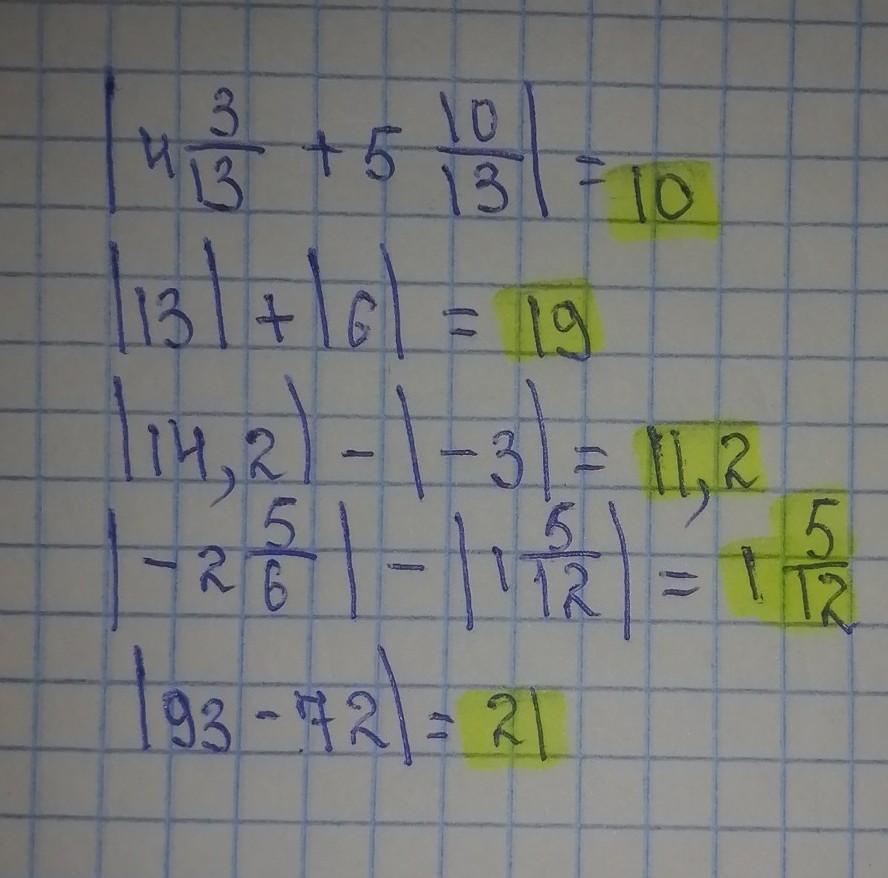 |4 3/13 + 5 10/13| = 10
|13| + |6| = 19
|14,2| - |-3| = 11,2
|-2 5/6| - |1 5/12| = 1 5/12
|93 - 72| = 21